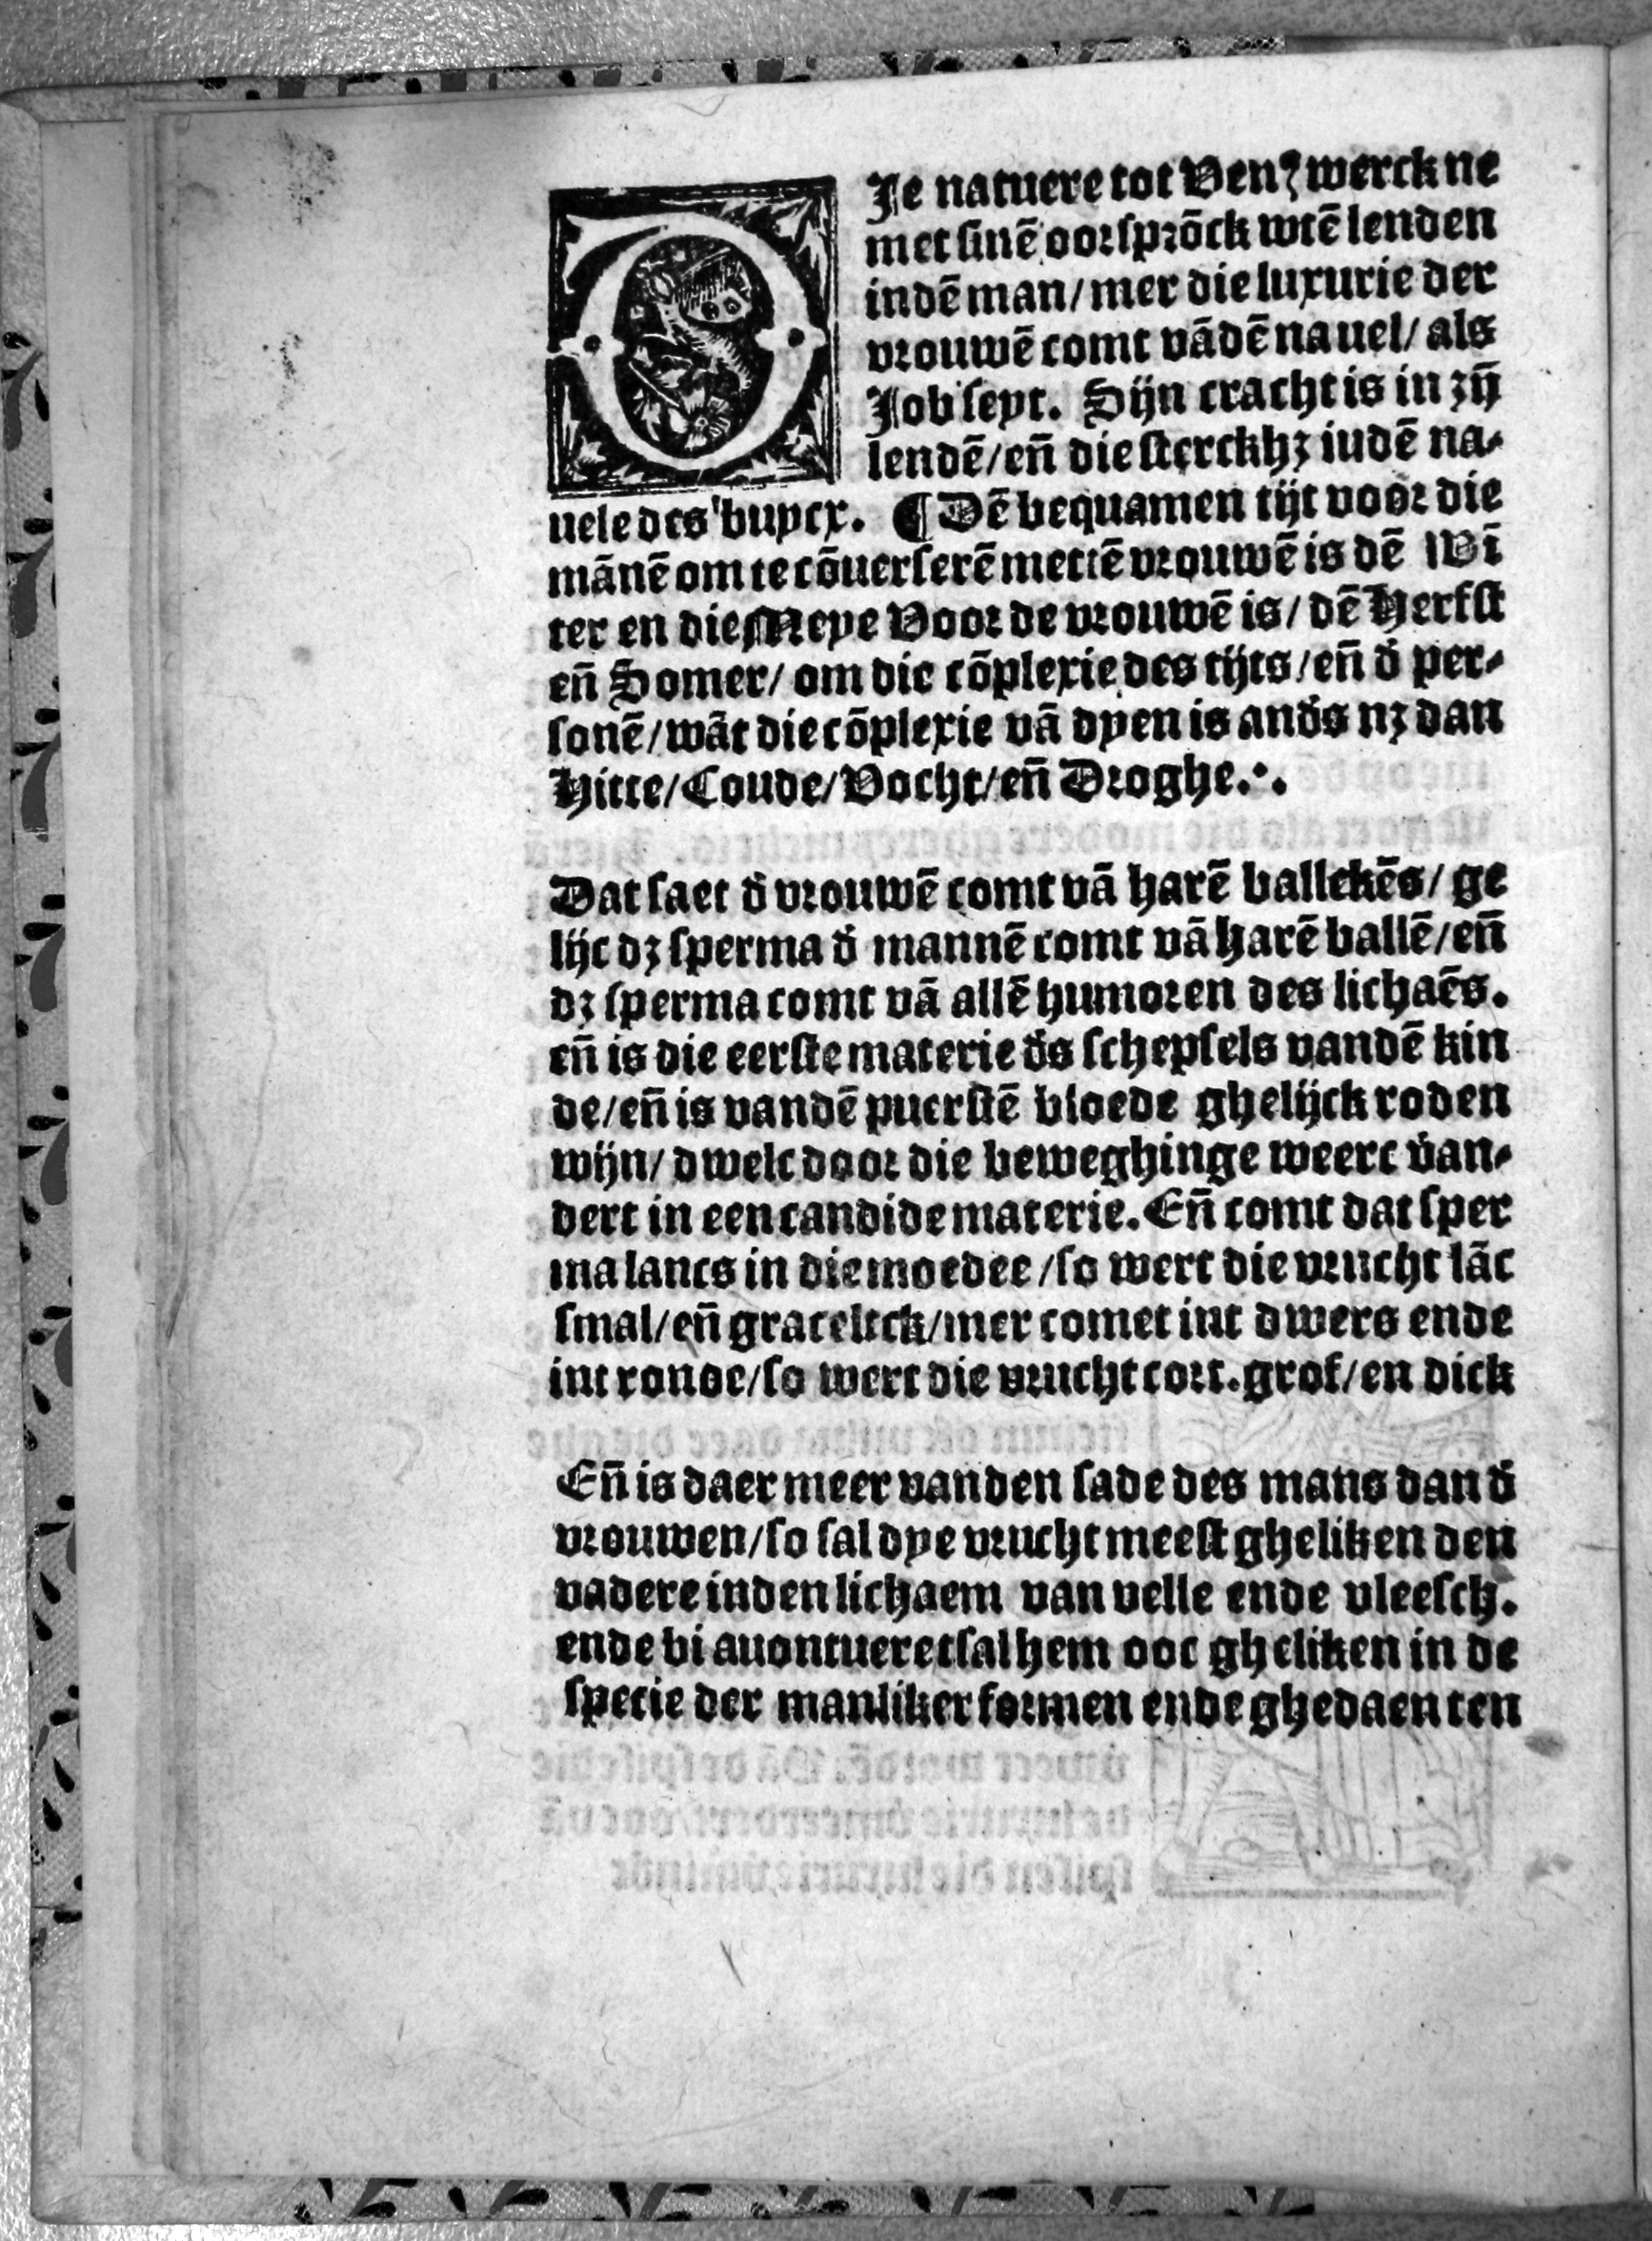 DJe natuere tot Venꝰ werck ne
met sinē oorsprōck wtē lenden
indē man/mer die luxurie der
vrouwē comt vādē nauel/als
Job seyt. Sijn cracht is in zȳ
lendē/en̄ die sterckhꝫ iudē na⸗
uele des buycx. ¶ Dē bequamen tijt voor die
mānē om te cōuerserē mettē vrouwē is dē Wī
ter en die Meye Voor de vrouwē is/dē Herfst
en̄ Somer/om die cōplexie des tijts/en̄ d̄ per⸗
sonē/wāt die cōplexie vā dyen is and̄s nꝫ dan
Hitte/Coude/Vocht/en̄ Droghe.·.
Dat saet d̄ vrouwē comt vā harē ballekēs/ge
lijc dꝫ sperma d̄ mannē comt vā harē ballē/en̄
dꝫ sperma comt vā allē humoren des lichaēs.
en̄ is die eerste materie d̄s schepsels vandē kin
de/en̄ is vandē puerstē bloede ghelijck roden
wijn/dwelc door die beweghinge weert v̄an⸗
dert in een candide materie. En̄ comt dat sper
ma lancs in die moedee/so wert die vrucht lāc
smal/en̄ gracelick/mer comet int dwers ende
int ronde/so wert die vrucht cort.grof/en dick
En̄ is daer meer vanden sade des mans dan d̄
vrouwen/so sal dye vrucht meest gheliken den
vadere inden lichaem van velle ende vleesch.
ende bi auontueret sal hem ooc gheliken in de
specie der manliker formen ende ghedaenten